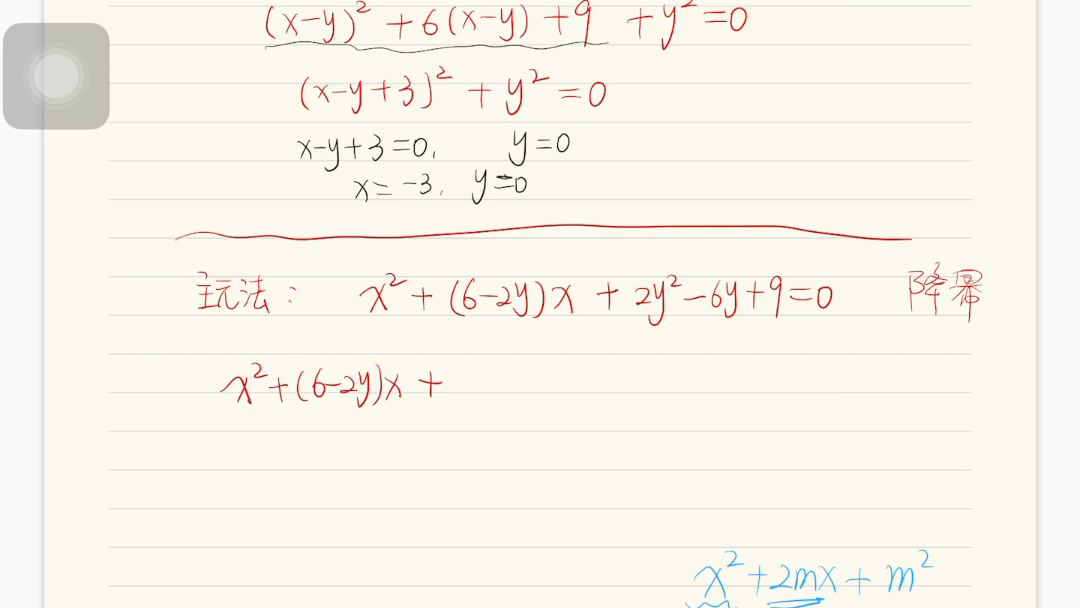 (x-y)² + 6(x-y) + 9 + y² = 0
(x-y+3)² + y² = 0
x-y+3=0, y=0
x=-3, y=0
主玩法: x² + (6-2y)x + 2y²-6y+9=0 降幂
x²+(6-2y)x +
x²+2mx+m²